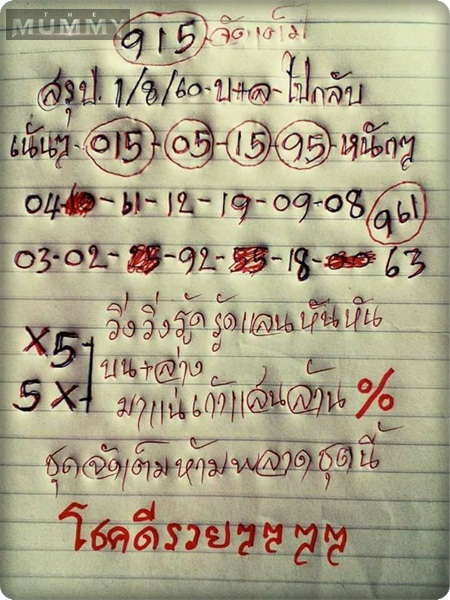 MUMMY
915 จัดเต็ม
สรุป. 1/8/60-บ+ล-ไปกลับ
เน้นๆ-015-05-15-95-หนักๆ
04-10-61-12-19-09-08 961
03-02-25-92-55-18- 63
วิ่งวิ่งรูดรูดแลนหันหัน
X5
บน+ล่าง
5X
มาแน่เก้าแสนล้าน %
ชุดจัดเต็มห้ามพลาดชุดนี้
โชคดีรวยๆๆๆๆ